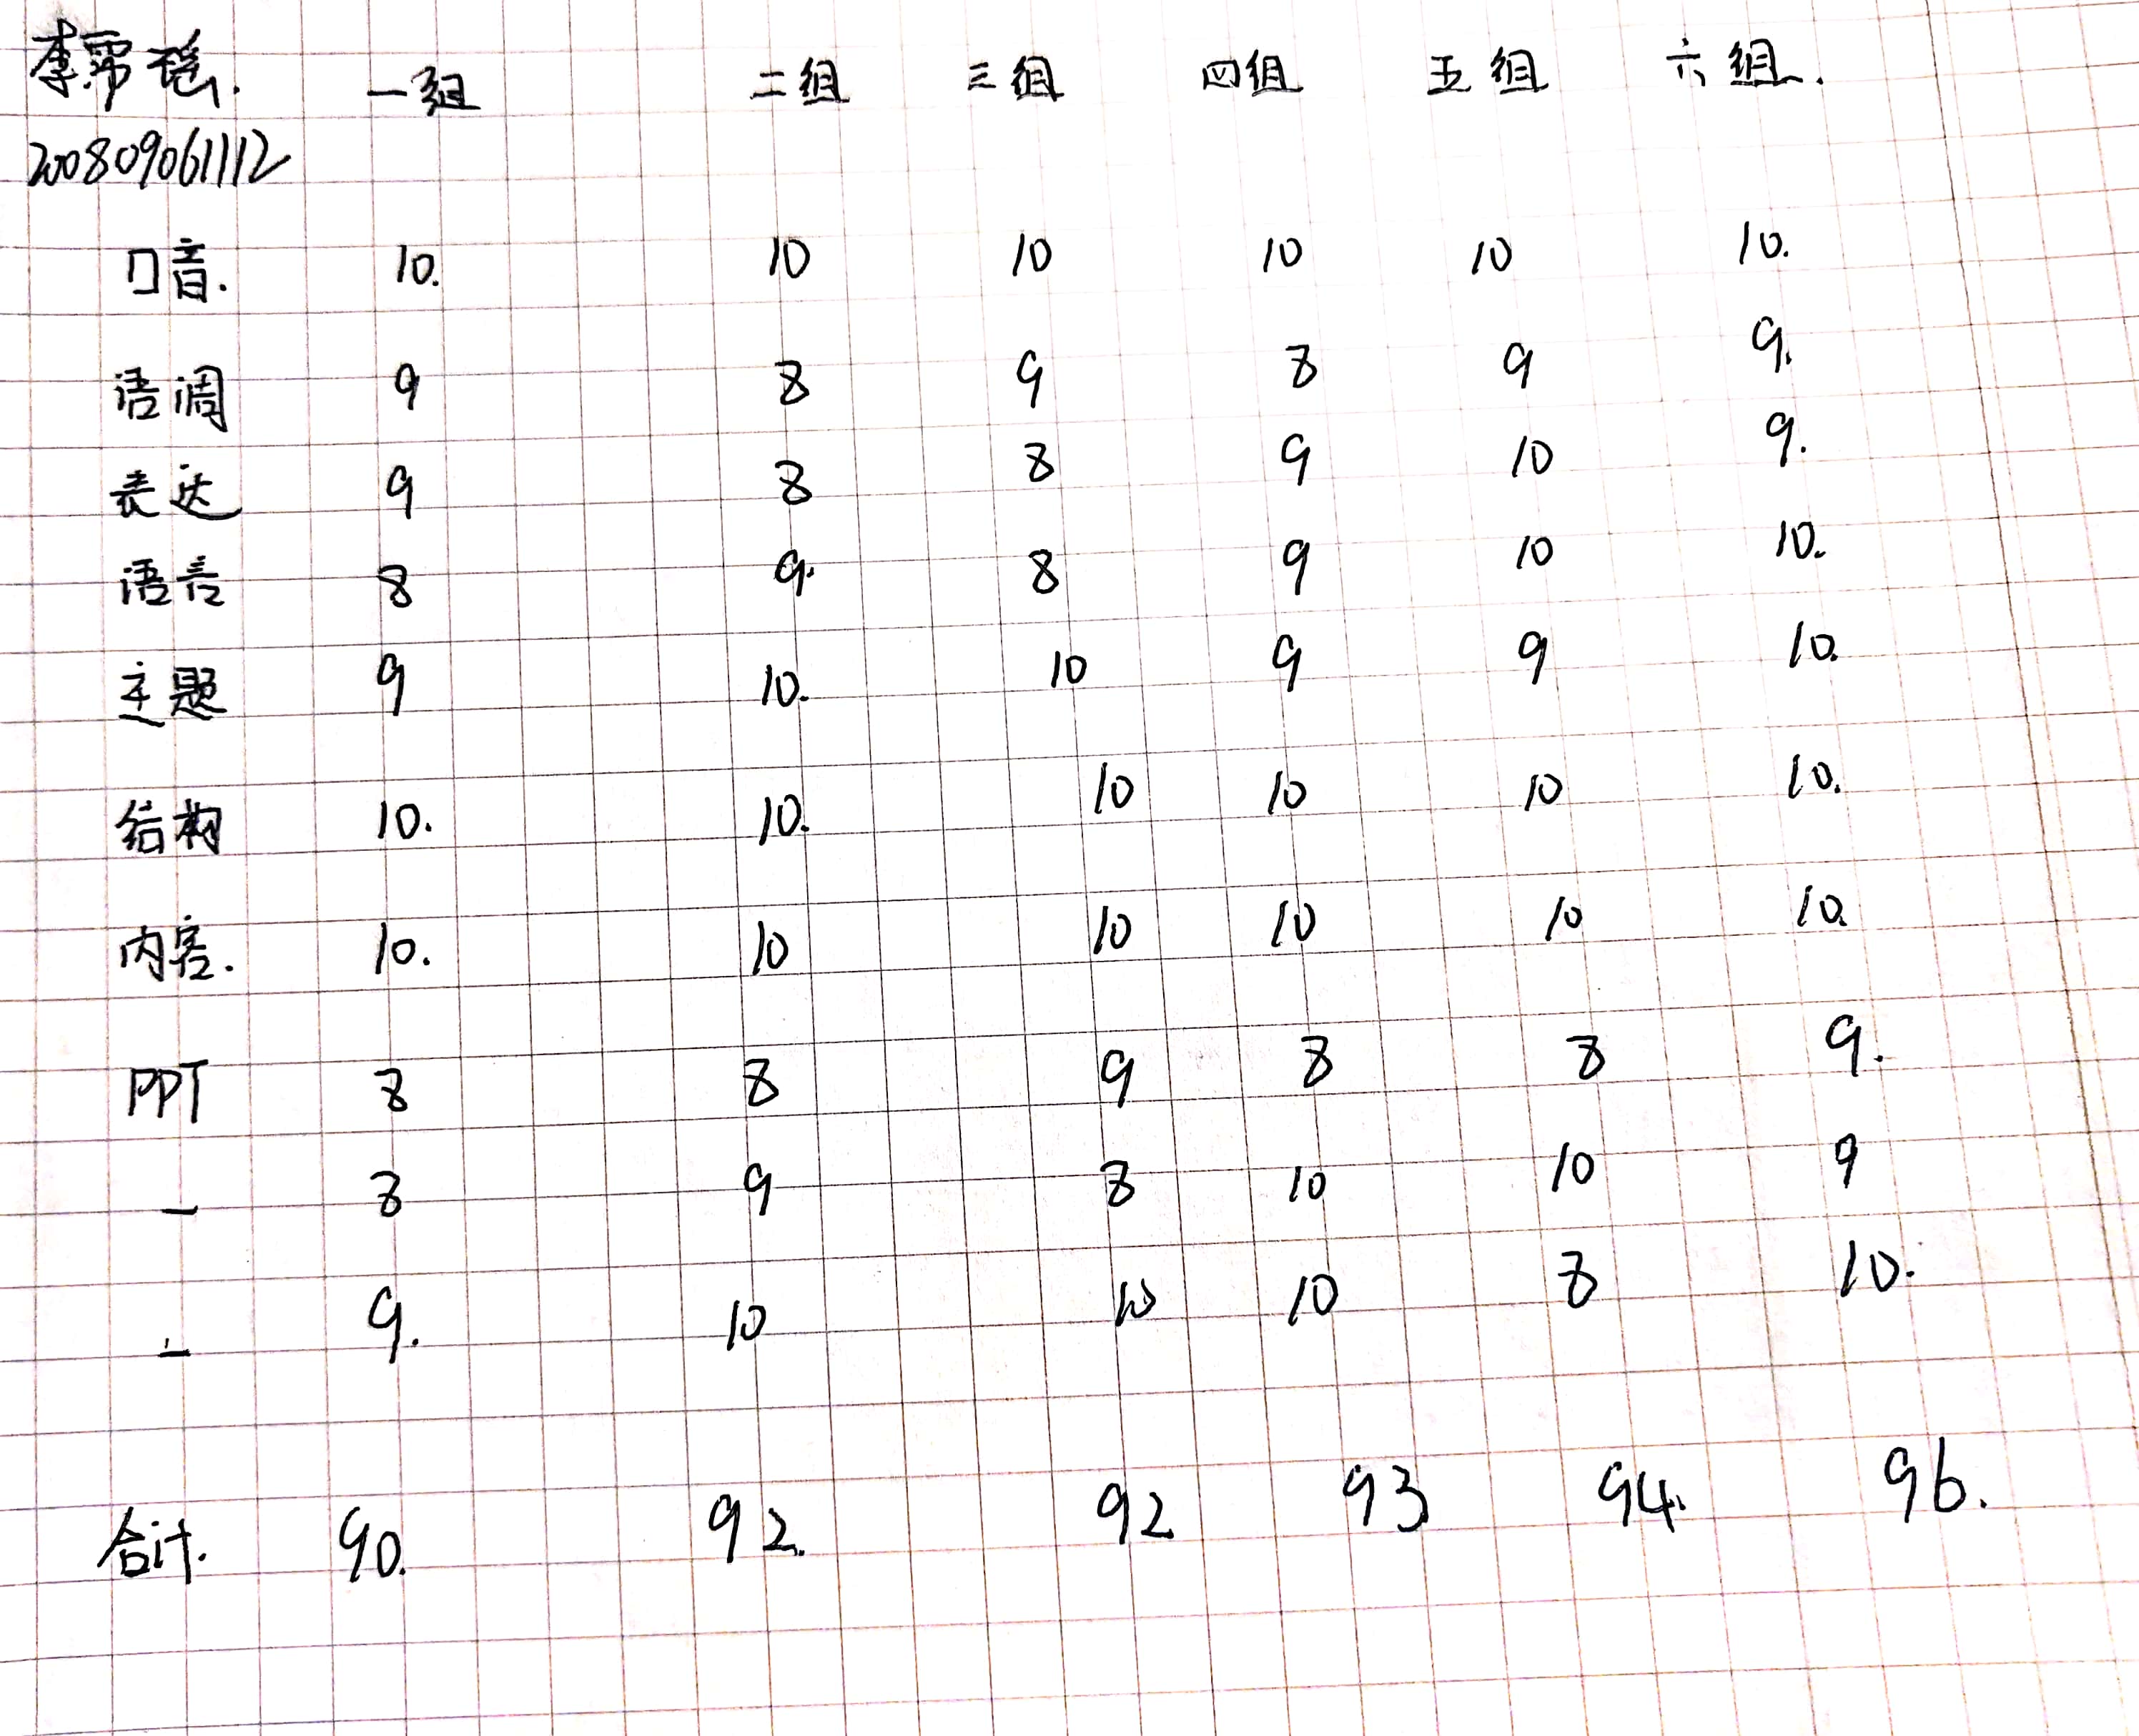 李霈瑶. 一组 二组 三组 四组 五组 六组.
200809061112
口音. 10. 10 10 10 10 10.
语调 9 8 9 8 9 9.
表达 9 8 8 9 10 9.
语言 8 9. 8 9 10 10.
主题 9 10. 10 9 9 10.
结构 10. 10. 10 10 10 10.
内容. 10. 10 10 10 10 10.
PPT 8 8 9 8 8 9.
一 8 9 8 10 10 9
二 9. 10 10 10 8 10.
合计. 90. 92. 92 93 94. 96.